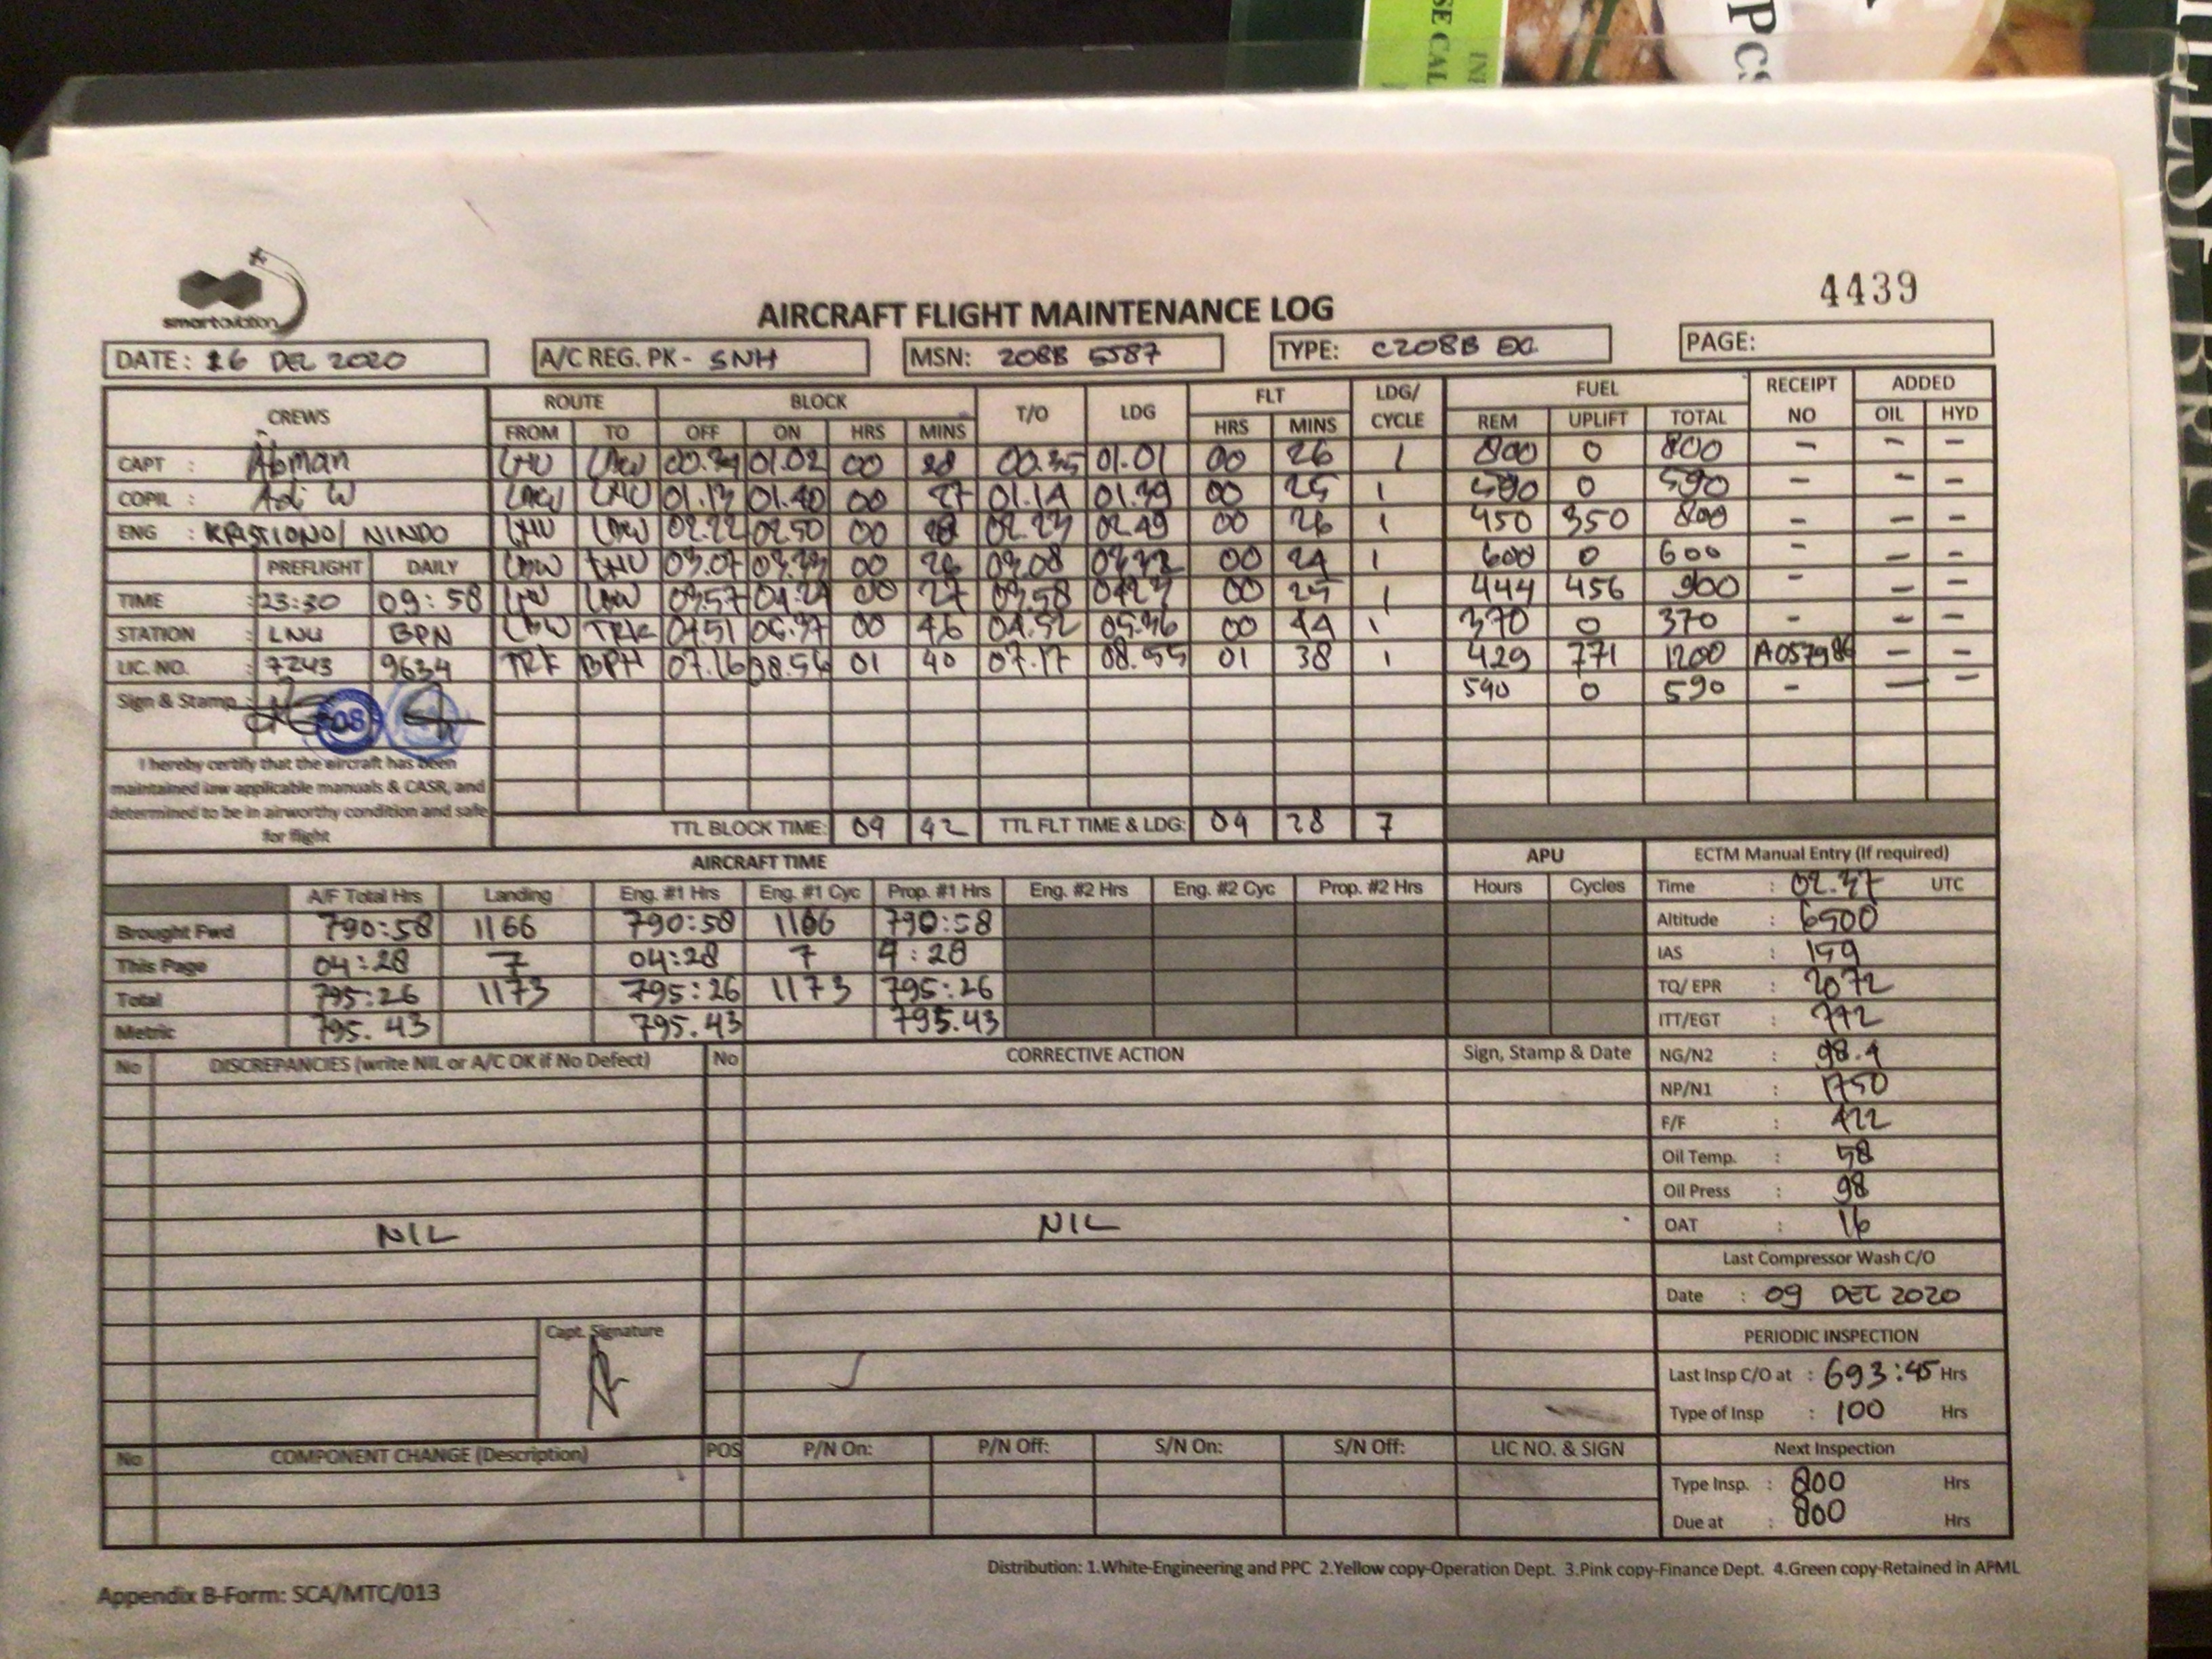 SE CAL
INF
PCS
smartaviation
4439
AIRCRAFT FLIGHT MAINTENANCE LOG
DATE: 16 DEC 2020 A/C REG. PK - SNH MSN: 208B 5587 TYPE: C208B EX PAGE:
CREWS ROUTE BLOCK T/O LDG FLT LDG/ CYCLE FUEL RECEIPT NO ADDED
FROM TO OFF ON HRS MINS HRS MINS REM UPLIFT TOTAL OIL HYD
CAPT : Abman LNU 01.02 00 28 00.35 01.01 00 26 1 800 0 800 - - -
COPIL : Adi W LNU 01.13 01.40 00 27 01.14 01.39 00 25 1 590 0 590 - - -
ENG : KRISTIONO/ NINDO LNU 02.22 02.50 00 28 02.23 02.49 00 26 1 450 350 800 - - -
PREFLIGHT DAILY LNU 03.07 03.33 00 26 03.08 03.32 00 24 1 600 0 600 - - -
TIME : 23:30 09:58 LNU 03.57 04.24 00 27 03.58 04.23 00 25 1 444 456 900 - - -
STATION : LNU BPN TRK 04.51 05.37 00 46 04.52 05.36 00 44 1 370 0 370 - - -
LIC. NO. : 7243 9634 TRK BPN 07.16 08.56 01 40 07.17 08.55 01 38 1 429 771 1200 - -
Sign & Stamp : 590 0 590 - - -
I hereby certify that the aircraft has been
maintained iaw applicable manuals & CASR, and
determined to be in airworthy condition and safe
for flight
TTL BLOCK TIME: 04 42 TTL FLT TIME & LDG: 04 28 7
AIRCRAFT TIME APU ECTM Manual Entry (If required)
A/F Total Hrs Landing Eng. #1 Hrs Eng. #1 Cyc Prop. #1 Hrs Eng. #2 Hrs Eng. #2 Cyc Prop. #2 Hrs Hours Cycles Time : 02.37 UTC
Brought Fwd 790:58 1166 790:58 1166 790:58 Altitude : 6500
This Page 04:28 7 04:28 7 4:28 IAS : 159
Total 795:26 1173 795:26 1173 795:26 TQ/ EPR : 2072
Metric 795.43 795.43 795.43 ITT/EGT : 742
No DISCREPANCIES (write NIL or A/C OK if No Defect) No CORRECTIVE ACTION Sign, Stamp & Date NG/N2 : 98.4
NP/N1 : 1750
F/F : 422
Oil Temp. : 58
Oil Press : 98
NIL NIL OAT : 16
Last Compressor Wash C/O
Date : 09 DEC 2020
Capt. Signature
PERIODIC INSPECTION
Last Insp C/O at : 693:45 Hrs
Type of Insp : 100 Hrs
No COMPONENT CHANGE (Description) POS P/N On: P/N Off: S/N On: S/N Off: LIC NO. & SIGN Next Inspection
Type Insp. : 800 Hrs
Due at : 800 Hrs
Distribution: 1.White-Engineering and PPC 2.Yellow copy-Operation Dept. 3.Pink copy-Finance Dept. 4.Green copy-Retained in AFML
Appendix B-Form: SCA/MTC/013